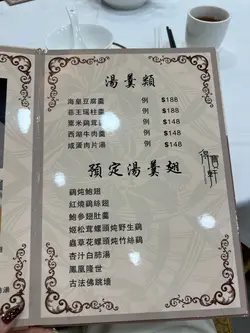 湯羹類
海皇豆腐羹 例 $188
菘王瑤柱羹 例 $188
粟米鷄茸羹 例 $148
西湖牛肉羹 例 $148
咸蛋肉片湯 例 $148
預定湯羹翅
鷄炖鮑翅
紅燒鷄絲翅
鮑參翅肚羹
姬松茸螺頭炖野生鷄
蟲草花螺頭炖竹絲鷄
杏汁白肺湯
鳳凰隆世
古法佛跳墻